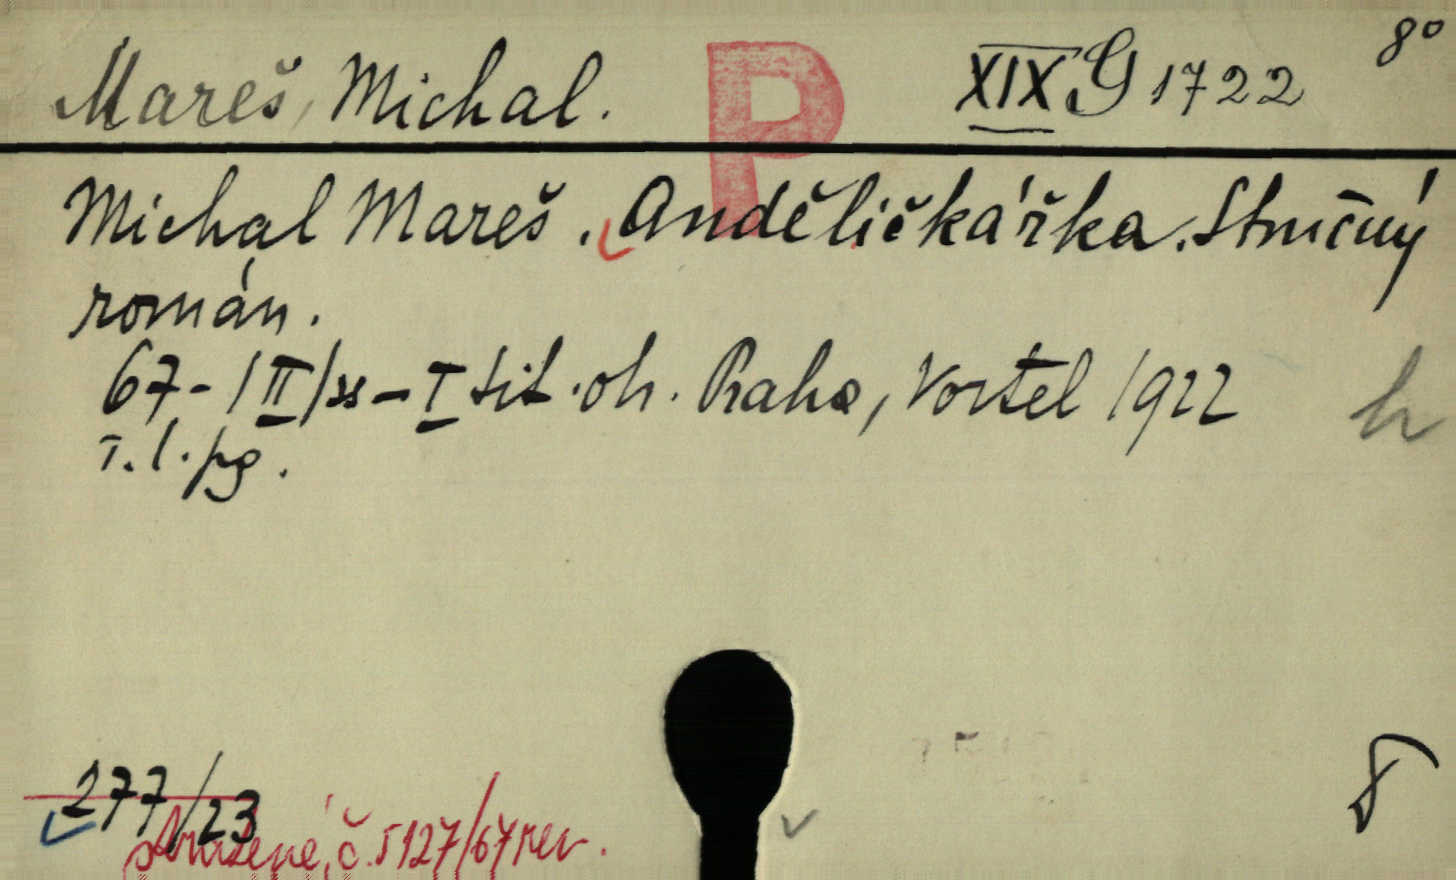 8°
Mareš, Michal. P XIX G 1722
Michal Mareš. Anděličkářka. Stručný
román.
67-/II/ss-I tit. ob. Praha, Vortel 1922
h
T. l. pg.
8
277/23
ztracené, č. 5127/67 rev.